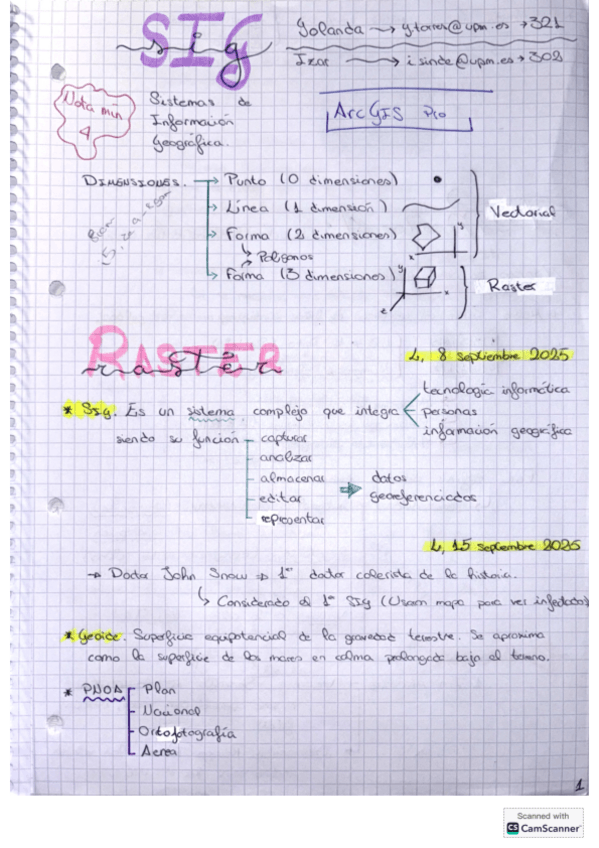 SIG
sig
Yolanda → ytorres@upm.es → 321
Izar → i.sinde@upm.es → 302
Nota min
4
Sistemas de
Información
Geográfica.
ArcGIS Pro
DIMENSIONES. → Punto (0 dimensiones)
→ Línea (1 dimensión)
→ Forma (2 dimensiones)
↳ Polígonos
→ Forma (3 dimensiones)
Vectorial
Raster
x
y
x
y
z
RASTER
raster
L, 8 septiembre 2025
* SIG. Es un sistema complejo que integra
tecnología informática
personas
información geográfica
siendo su función
- capturar
- analizar
- almacenar
- editar
- representar
→ datos
georeferenciados
L, 15 septiembre 2025
→ Doctor John Snow → 1er doctor colerista de la historia.
↳ Considerado el 1er SIG (Usam mapa para ver infectados)
* Geoide. Superficie equipotencial de la gravedad terrestre. Se aproxima
como la superficie de los mares en calma prolongada bajo el terreno.
* PNOA
Plan
Nacional
Ortofotografía
Aerea
1
Scanned with
CS CamScanner